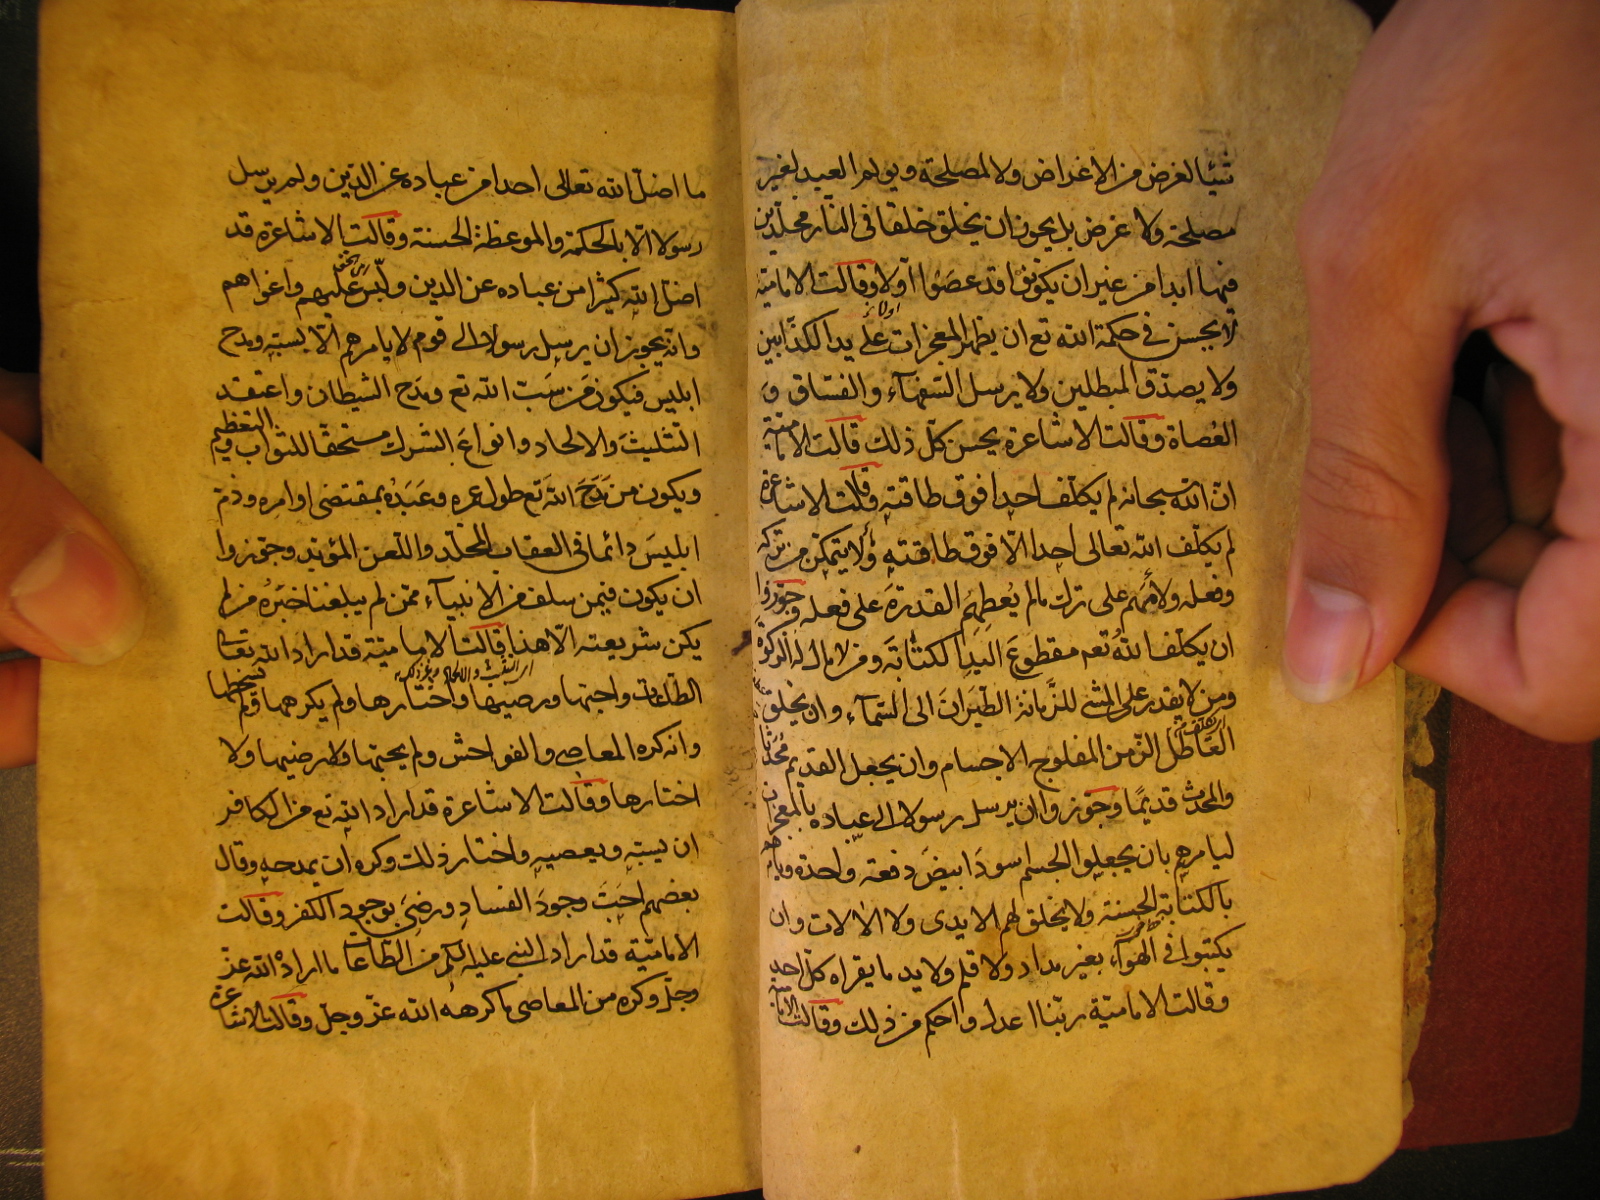 شيئا لغرض من الاغراض ولا لمصلحة ويولم العبيد لغير
مصلحة ولا غرض بل يجوز ان يخلق خلقا فى النار مخلدين
فيها ابدا من غير ان يكونوا قد عصوا اولا وقالت الامامية
لا يحسن في حكمة الله تع ان يظهر المعجزات على يد الكذابين
ولا يصدق المبطلين ولا يرسل السفهاء والفساق و
العصاة وقالت الاشاعرة يحسن كل ذلك قالت الامامية
ان الله سبحانه لم يكلف احدا فوق طاقته وقالت الاشاعرة
لم يكلف الله تعالى احدا الا فوق طاقته ولا يتمكن من تركه
وفعله ولامهم على ترك ما لم يعطهم القدرة على فعله وجوزوا
ان يكلف الله تع مقطوع اليد الكتابة ومن لا مال له الزكوة
ومن لا يقدر على المشى للزمانة الطيران الى السماء وان يخلق
العاطل الزمن المفلوج الاجسام وان يجعل القديم محدثا
والمحدث قديما وجوزوا ان يرسل رسولا الى عباده بالمعجزات
ليامرهم بان يجعلوا الجسم اسود ابيض دفعة واحدة ويامرهم
بالكتابة الحسنة ولا يخلق لهم الايدى ولا الالات وان
يكتبوا فى الهواء بغير مداد ولا قلم ولا يد ما يقراه كل احد
وقالت الامامية ربنا اعدل واحكم من ذلك وقالت الامامية
ما اضل الله تعالى احدا من عباده عن الدين ولم يرسل
رسولا الا بالحكمة والموعظة الحسنة وقالت الاشاعرة قد
اضل الله كثيرا من عباده عن الدين ولبس عليهم واغواهم
وانه يجوز ان يرسل رسولا الى قوم لا يامرهم الا بسبه ومدح
ابليس فيكون من سب الله تع ومدح الشيطان واعتقد
التثليث والالحاد وانواع الشرك مستحقا للثواب والتعظيم
ويكون من مدح الله تع طول عمره وعبده بمقتضى اوامره وذم
ابليس دائما فى العقاب المخلد واللعن المؤبد وجوزوا
ان يكون فيمن سلف من الانبياء ممن لم يبلغنا خبره من لم
يكن شريعته الا هذا قالت الامامية قد اراد الله تعالى
الطاعات واحبها ورضيها واختارها ولم يكرهها ولم يسخطها
وانه كره المعاصى والفواحش ولم يحبها ولا رضيها ولا
اختارها وقالت الاشاعرة قد اراد الله تع من الكافر
ان يسبه ويعصيه واختار ذلك وكره ان يمدحه وقال
بعضهم احب وجود الفساد ورضى بوجود الكفر وقالت
الامامية قد اراد النبى عليه السلم من الطاعات ما اراده الله عز
وجل وكره من المعاصى ما كرهه الله عز وجل وقالت الاشاعرة